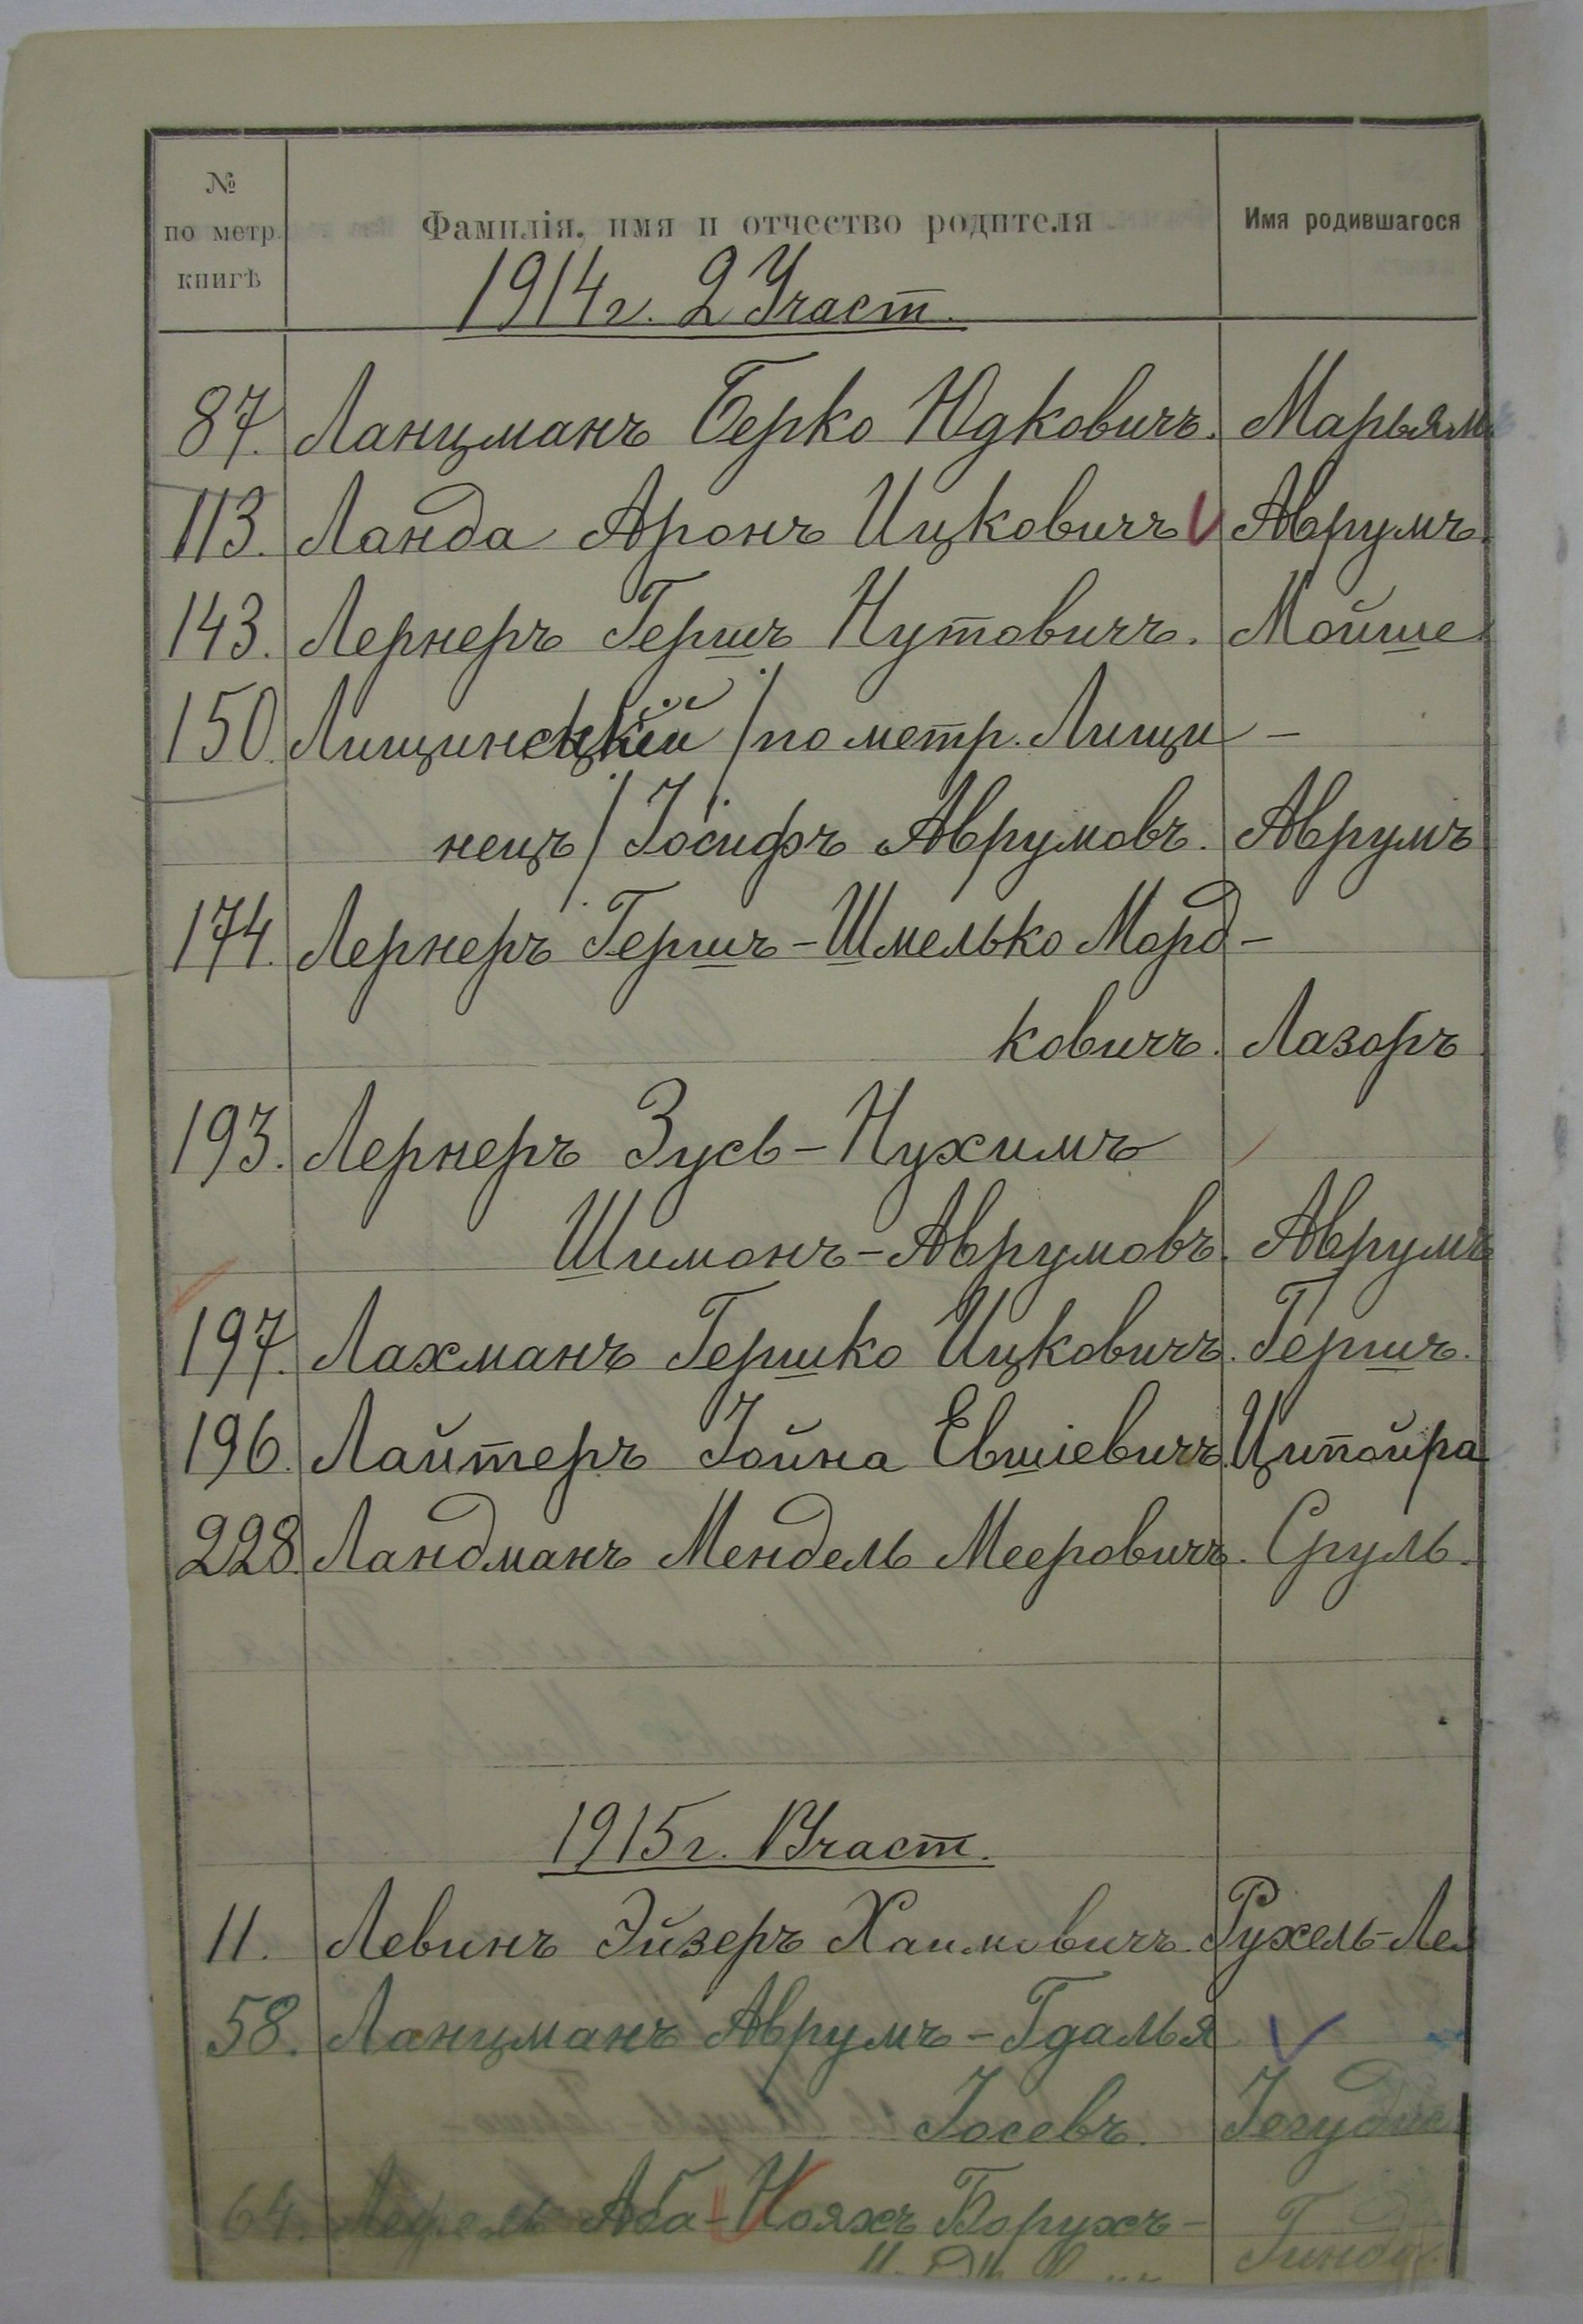 № по метр. книгѣ Фамилія, имя и отчество родителя Имя родившагося
1914 г. 2 Участ.
87. Ланцманъ Берко Юдковичъ. Марьямъ
113. Ланда Аронъ Ицковичъ Аврумъ.
143. Лернеръ Гершъ Нутовичъ. Мойше
150. Лищинскій /по метр. Лищи-
нецъ/ Іосифъ Аврумовъ. Аврумъ
174. Лернеръ Гершъ-Шмелько Морд-
ковичъ. Лазоръ
193. Лернеръ Зусь-Нухимъ
Шимонъ-Аврумовъ. Аврумъ
197. Лахманъ Гершко Ицковичъ. Гершъ.
196. Лайтеръ Іойна Евшіевичъ. Ципойра
228. Ландманъ Мендель Мееровичъ. Сруль.
1915 г. 1 Участ.
11. Левинъ Эйзеръ Хаимовичъ. Рухель-Лея
58. Ланцманъ Аврумъ-Гдалья
Іосевъ.
64. Аба-Нояхъ Борухъ-
Гинда